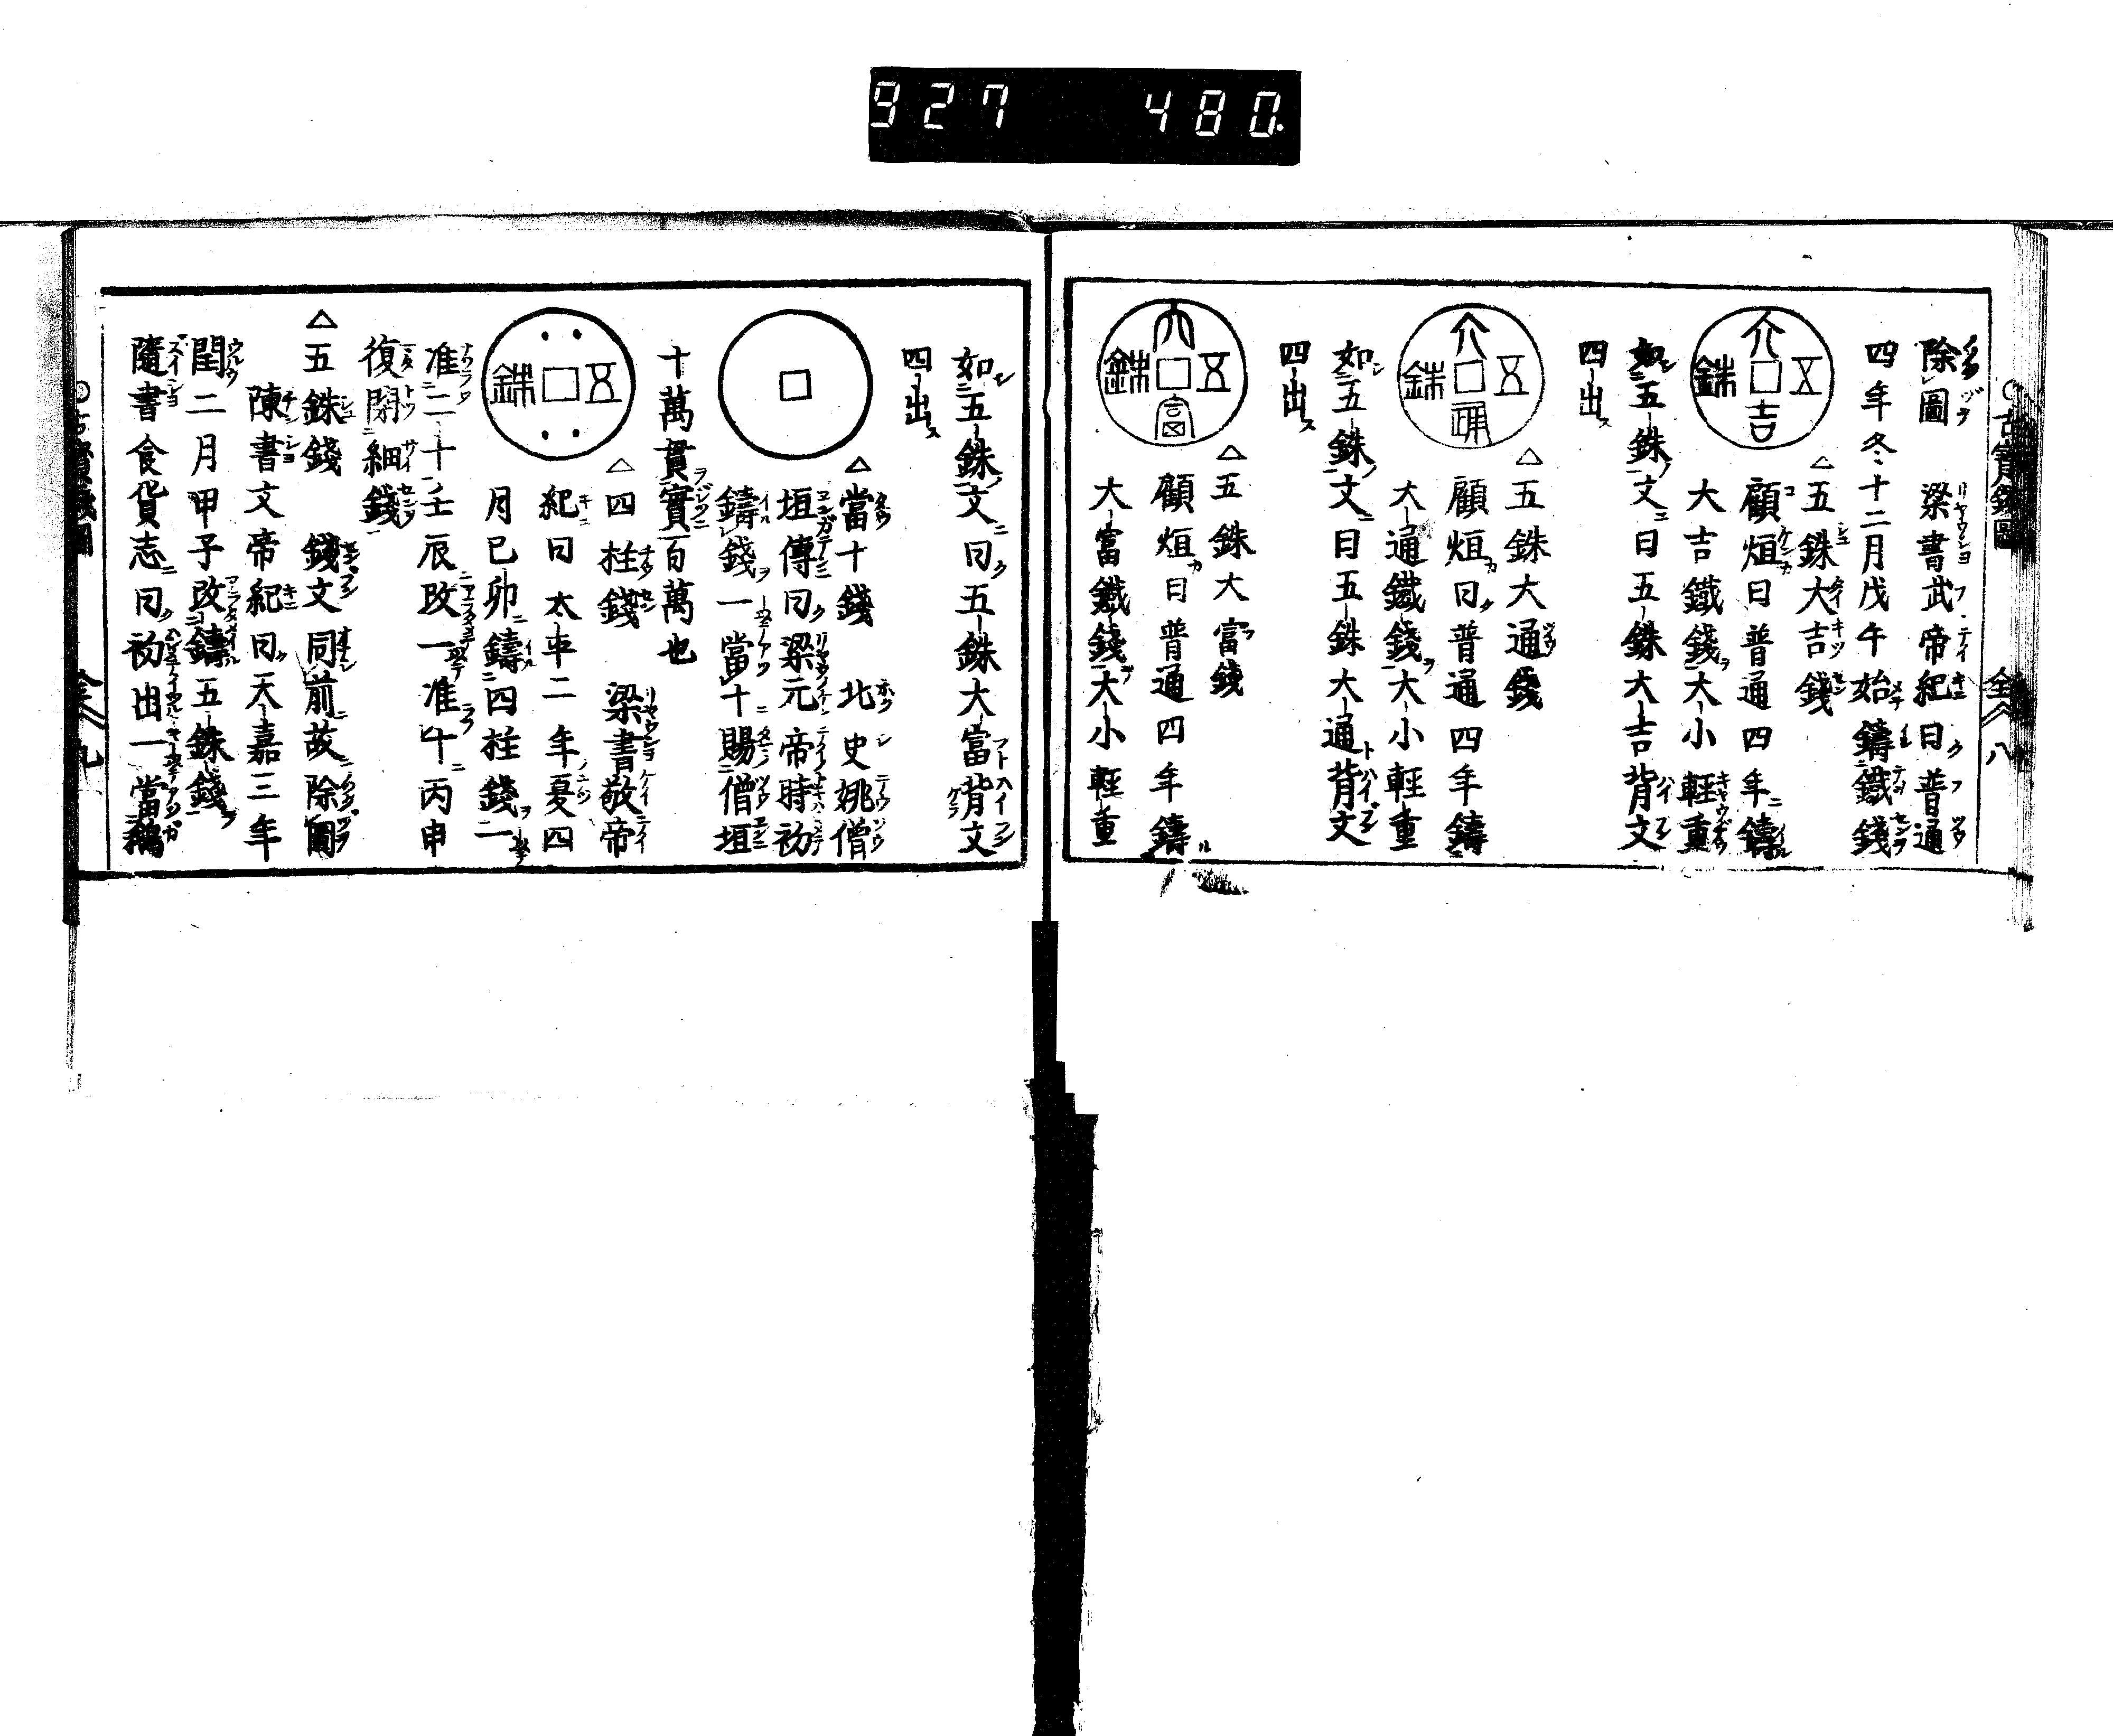 927 480.
除圖 梁書武帝紀曰普通
四年冬十二月戊午始鑄鐵錢
五銖大吉
△五銖大吉錢
顧烜曰普通四年鑄
大吉鐵錢大小輕重
如五銖文曰五銖大吉背文
四出
五銖大通
△五銖大通錢
顧烜曰普通四年鑄
大通鐵錢大小輕重
如五銖文曰五銖大通背文
四出
五銖大富
△五銖大富錢
顧烜曰普通四年鑄
大富鐵錢大小輕重
全 八
如五銖文曰五銖大富背文
四出
△當十錢 北史姚僧
垣傳曰梁元帝時初
鑄錢一當十賜僧垣
十萬貫實百萬也
五銖
△四柱錢 梁書敬帝
紀曰太平二年夏四
月己卯鑄四柱錢一
准二十壬辰改一准十丙申
復閉細錢
△五銖錢 錢文同前故除圖
陳書文帝紀曰天嘉三年
閏二月甲子改鑄五銖錢
隨書食貨志曰初出一當鵝
全 九